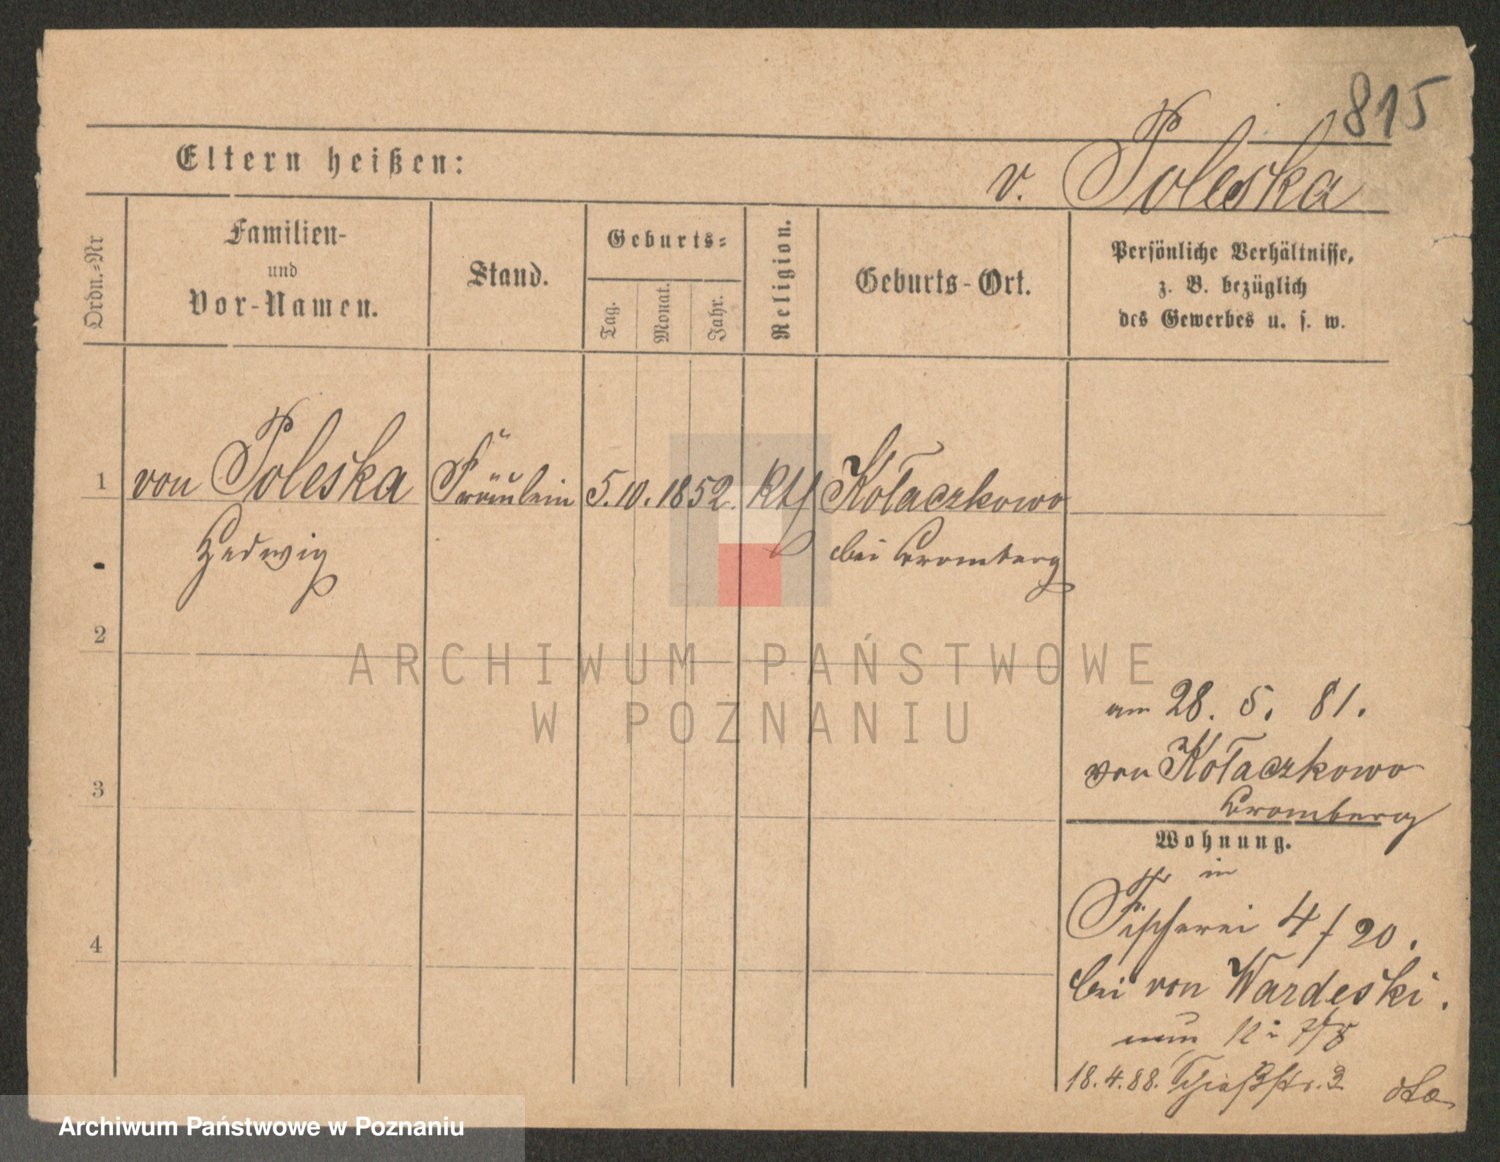 815
Eltern heißen:
v. Poleska
Ordn.-Nr
Familien-
und
Vor-Namen.
Stand.
Geburts-
Tag.
Monat.
Jahr.
Religion.
Geburts-Ort.
Persönliche Verhältnisse,
z. B. bezüglich
des Gewerbes u. s. w.
1 von Poleska Fräulein 5. 10. 1852. kth Kołaczkowo
Hedwig bei Bromberg
2
ARCHIWUM PAŃSTWOWE
W POZNANIU
am 28. 5. 81.
von Kołaczkowo
Bromberg
3
Wohnung.
in
Fischerei 4/20.
4
bei von Wardeski.
12 7/8
18.4.88. Schießstr. 3
Archiwum Państwowe w Poznaniu